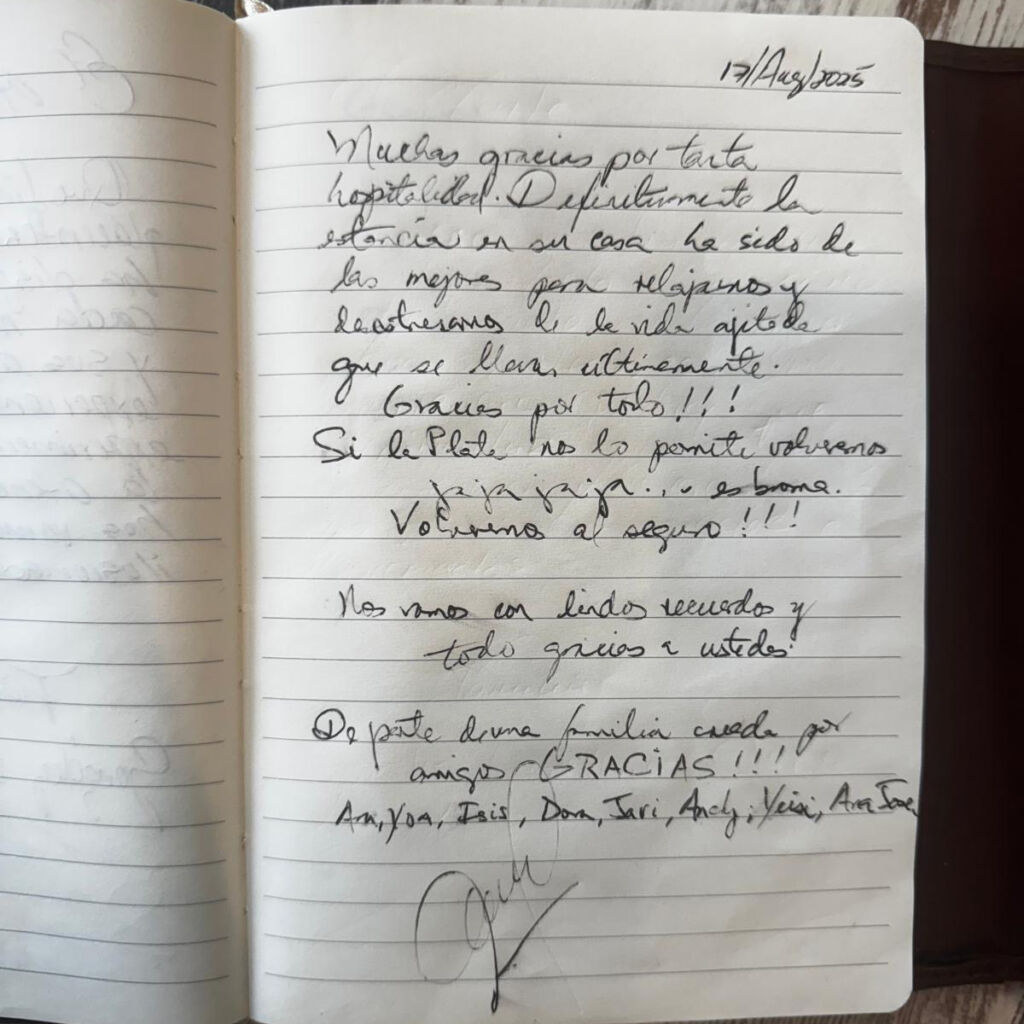 17/Aug/2025
Muchas gracias por tanta
hospitalidad. Definitivamente la
estancia en su casa ha sido de
las mejores para relajarnos y
de la vida agitada
que se lleva ultimamente.
Gracias por todo!!!
Si la Plata nos lo permite volveremos
jajajaja... es broma.
Volveremos al seguro!!!
Nos vamos con lindos recuerdos y
todo gracias a ustedes.
De parte de una familia creada por
amigos GRACIAS!!!
Ana, Yoa, Isis, Dora, Javi, Andy, Yeisi, Ana Jose